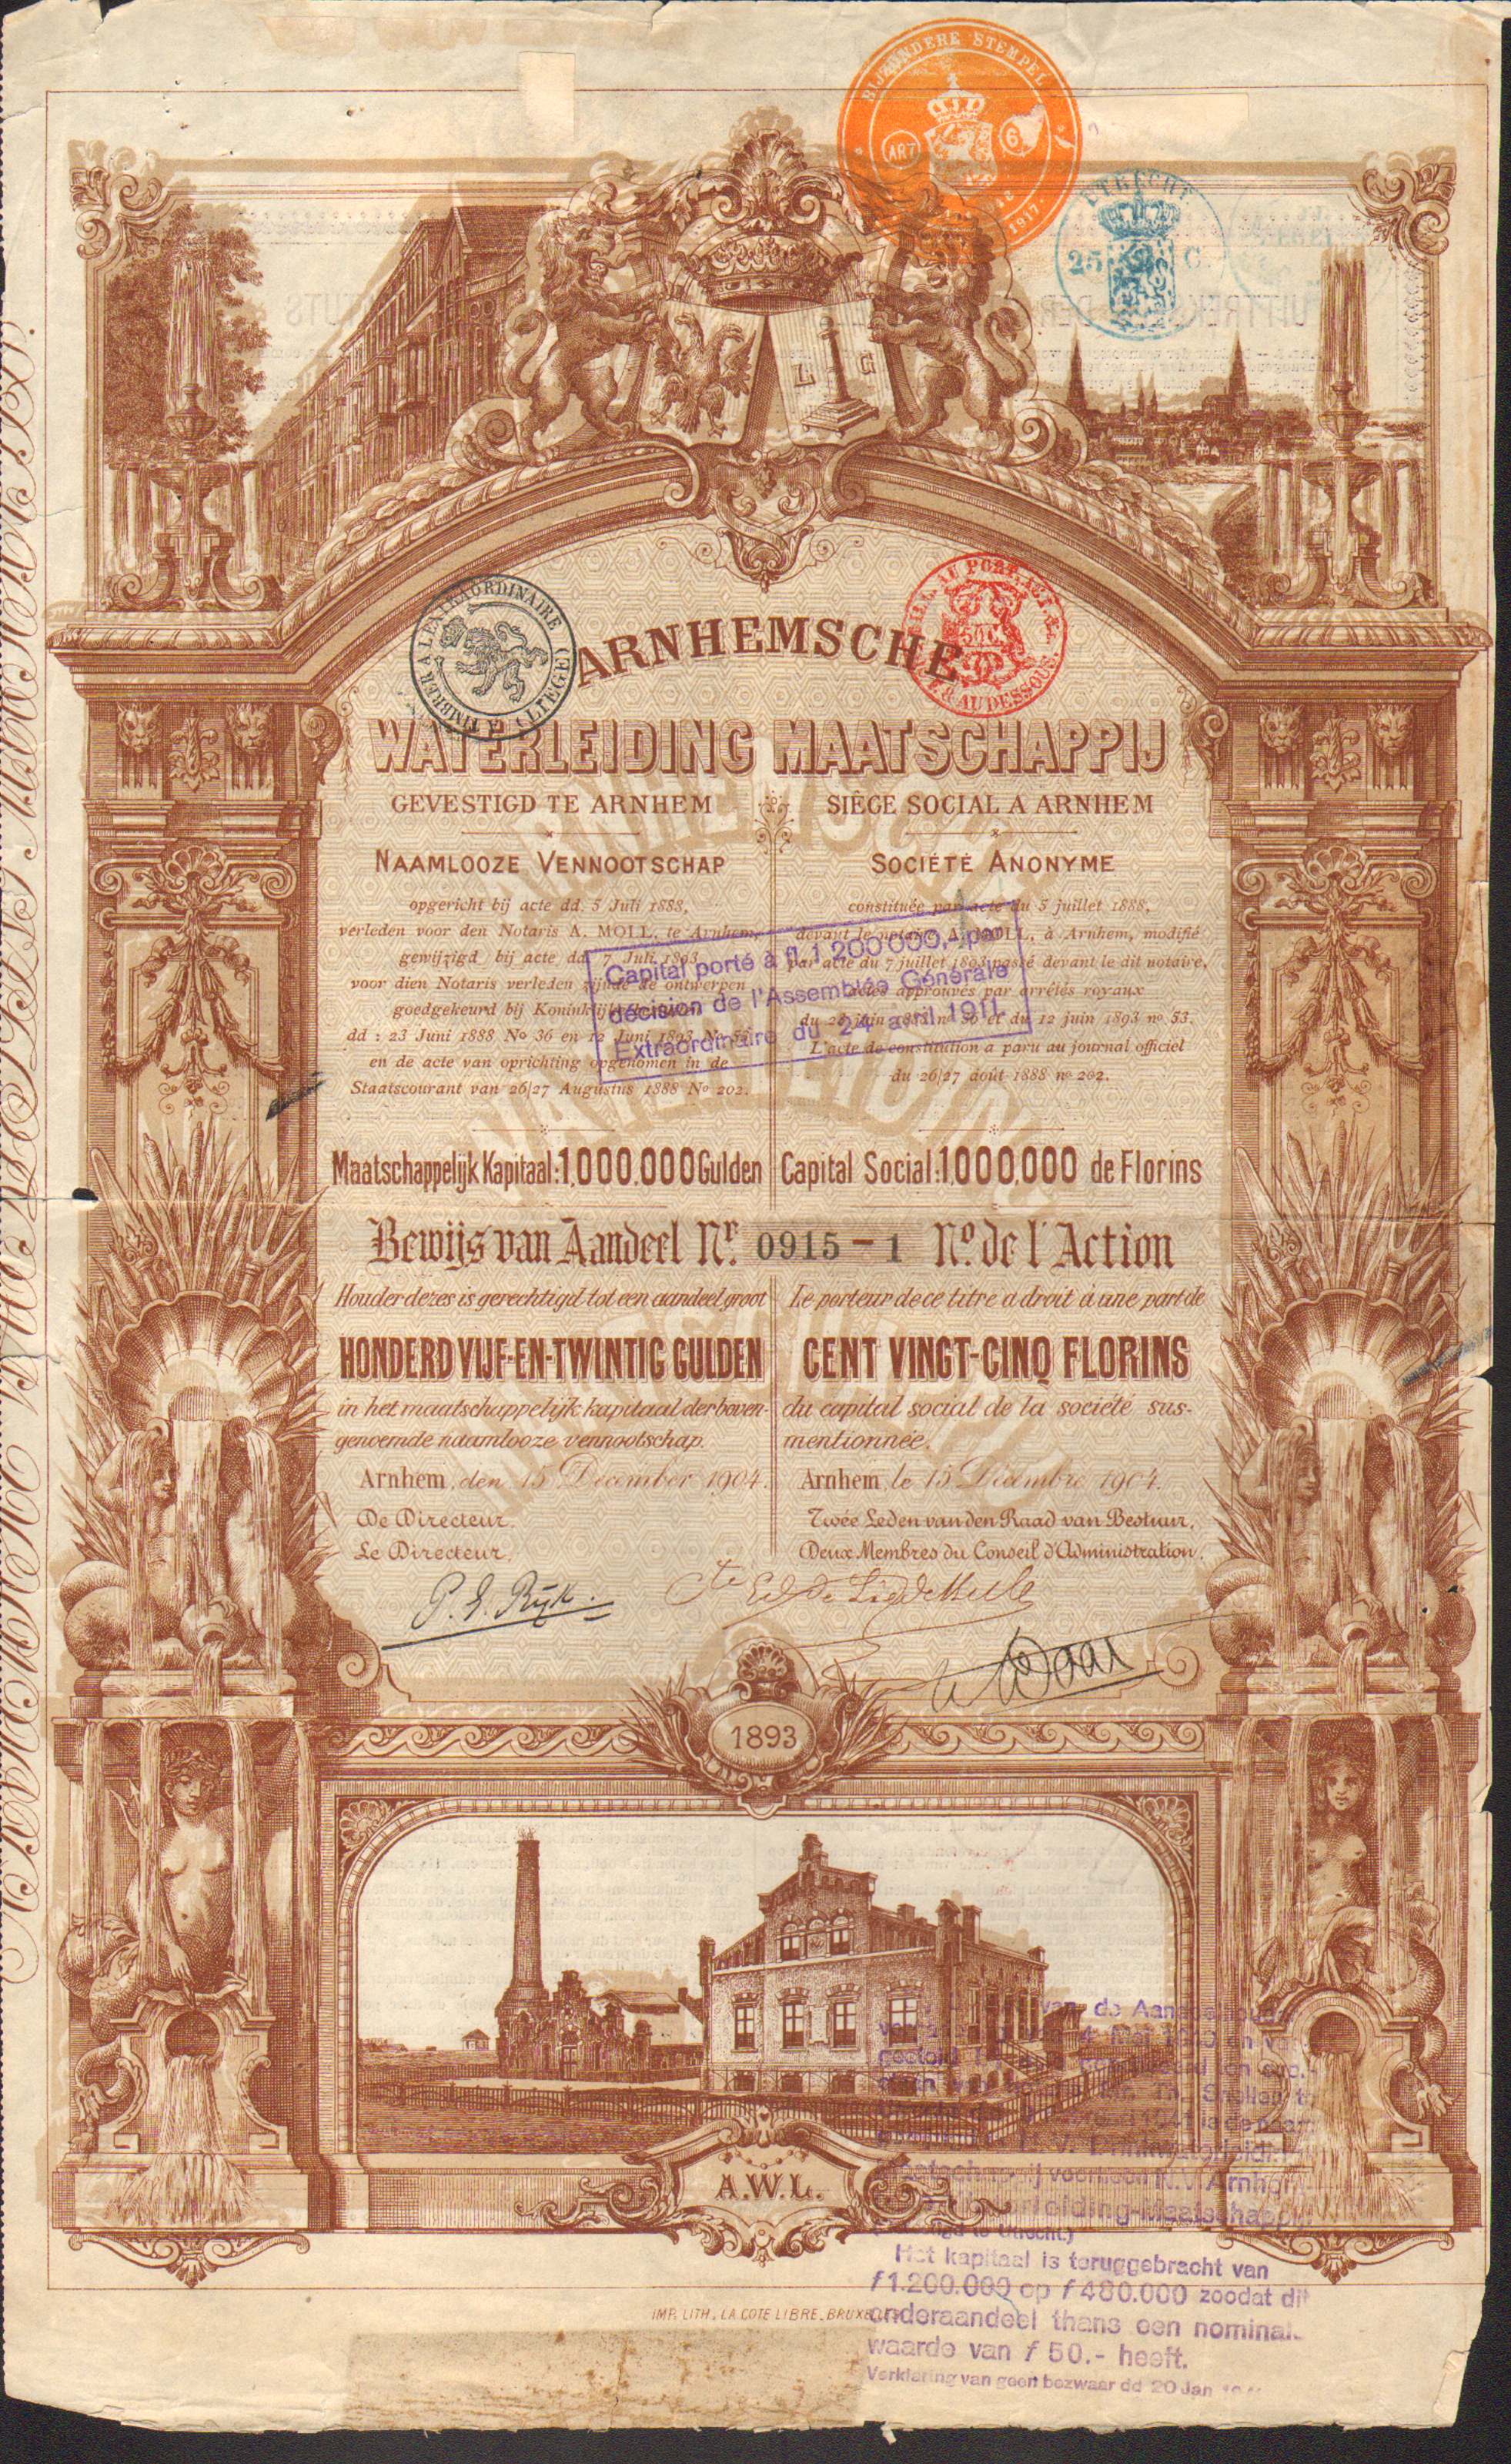 BIJZONDERE STEMPEL
ART 6
1917.
UTRECHT
25 C.
L G
A TIMBRER A L'EXTRAORDINAIRE (LIEGE)
50C.
& AU DESSOUS.
ARNHEMSCHE
WATERLEIDING MAATSCHAPPIJ
GEVESTIGD TE ARNHEM
NAAMLOOZE VENNOOTSCHAP
opgericht bij acte dd. 5 Juli 1888,
verleden voor den Notaris A. MOLL, te Arnhem,
gewijzigd bij acte dd 7 Juli 1893
voor dien Notaris verleden zijnde de ontwerpen
goedgekeurd bij Koninklijk
dd : 23 Juni 1888 No 36 en 12 Juni 1893 No 53
en de acte van oprichting opgenomen in de
Staatscourant van 26/27 Augustus 1888 No 202.
SIÈGE SOCIAL A ARNHEM
SOCIÉTÉ ANONYME
constituée par acte du 5 juillet 1888,
devant le notaire A. MOLL, à Arnhem, modifié
par acte du 7 juillet 1893 passé devant le dit notaire,
actes approuvés par arrêtés royaux
du 23 juin 1888 no 36 et du 12 juin 1893 no 53.
L'acte de constitution a paru au journal officiel
du 26/27 août 1888 no 202.
Capital porté à fl. 1.200.000,- par
décision de l'Assemblée Générale
Extraordinaire du 24 avril 1911
Maatschappelijk Kapitaal: 1,000.000 Gulden
Capital Social: 1,000,000 de Florins
Bewijs van Aandeel Nr. 0915 - 1 No. de l'Action
Houder dezes is gerechtigd tot een aandeel groot
HONDERD VIJF-EN-TWINTIG GULDEN
in het maatschappelijk kapitaal der boven-
genoemde naamlooze vennootschap.
Arnhem, den 15 December 1904.
De Directeur.
Le Directeur,
P. J. Rijk.
Le porteur de ce titre a droit à une part de
CENT VINGT-CINQ FLORINS
du capital social de la société sus-
mentionnée.
Arnhem, le 15 Décembre 1904.
Twée Leden van den Raad van Bestuur,
Deux Membres du Conseil d'Administration.
1893
A.W.L.
van de
Mr. Th. Snellen te
N.V. Drinkwaterleiding
Maatschappij voorheen N.V. Arnhem
Waterleiding-Maatschappij
te Utrecht.)
Het kapitaal is teruggebracht van
f 1.200.000 op f 480.000 zoodat dit
onderaandeel thans een nominale
waarde van f 50.- heeft.
Verklaring van geen bezwaar dd 20 Jan
IMP. LITH. LA COTE LIBRE. BRUXELLES